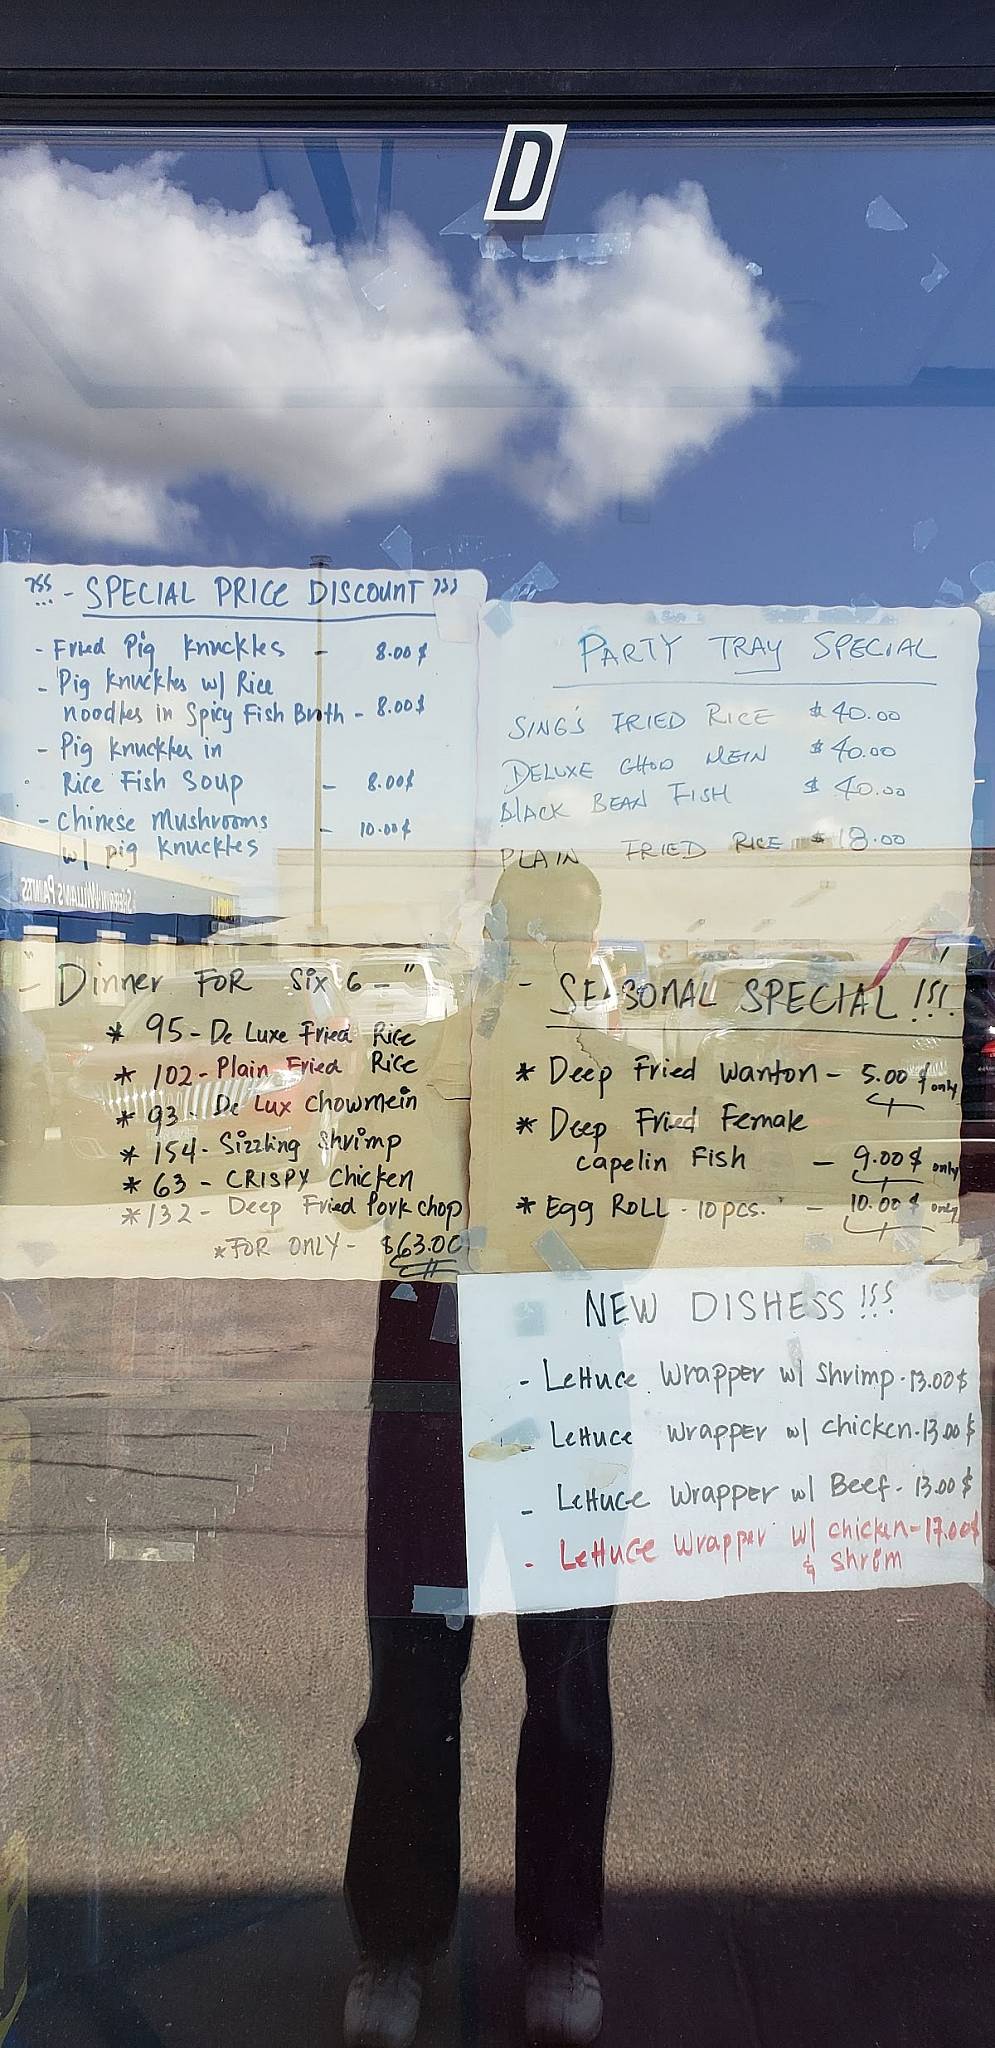 D
??? - SPECIAL PRICE DISCOUNT ???
- Fried Pig Knuckles - 8.00$
- Pig Knuckles w/ Rice
noodles in Spicy Fish Broth - 8.00$
- Pig Knuckles in
Rice Fish Soup - 8.00$
- Chinese Mushrooms - 10.00$
w/ pig Knuckles
PARTY TRAY SPECIAL
SING'S FRIED RICE $40.00
DELUXE CHOW MEIN $40.00
BLACK BEAN FISH $40.00
PLAIN FRIED RICE $18.00
SHERWIN-WILLIAMS PAINTS
"- Dinner FOR Six 6 - "
* 95 - De Luxe Fried Rice
* 102 - Plain Fried Rice
* 93 - De Lux chowmein
* 154 - Sizzling Shrimp
* 63 - CRISPY Chicken
* 132 - Deep Fried Pork chop
* FOR ONLY - $63.00
- SEASONAL SPECIAL !!!
* Deep Fried Wanton - 5.00$ only
* Deep Fried Female
capelin Fish - 9.00$ only
* Egg ROLL - 10 pcs. - 10.00$ only
NEW DISHESS !!!
- Lettuce Wrapper w/ Shrimp - 13.00$
- Lettuce Wrapper w/ chicken - 13.00$
- Lettuce Wrapper w/ Beef - 13.00$
- Lettuce Wrapper w/ chicken - 17.00$
& shrim